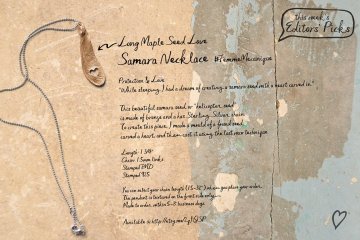 This week's
Editors Picks
Long Maple Seed Love
Samara Necklace
Protection & Love
"While sleeping, I had a dream of creating a samara seed with a heart carved in."
This beautiful samara seed, or "helicopter seed"
is made of bronze and has Sterling Silver chain.
To create this piece, I made a mould of a friend seed,
carved a heart, and then cast it using the lost wax technique.
Length: 1
Chain: 1.5mm links
Stamped
Stamped 925
You can select your chain length when you place your order.
The pendant is textured on the front side only.
Made to order, within 5-8 business days.
Available @ http://etsy.me/